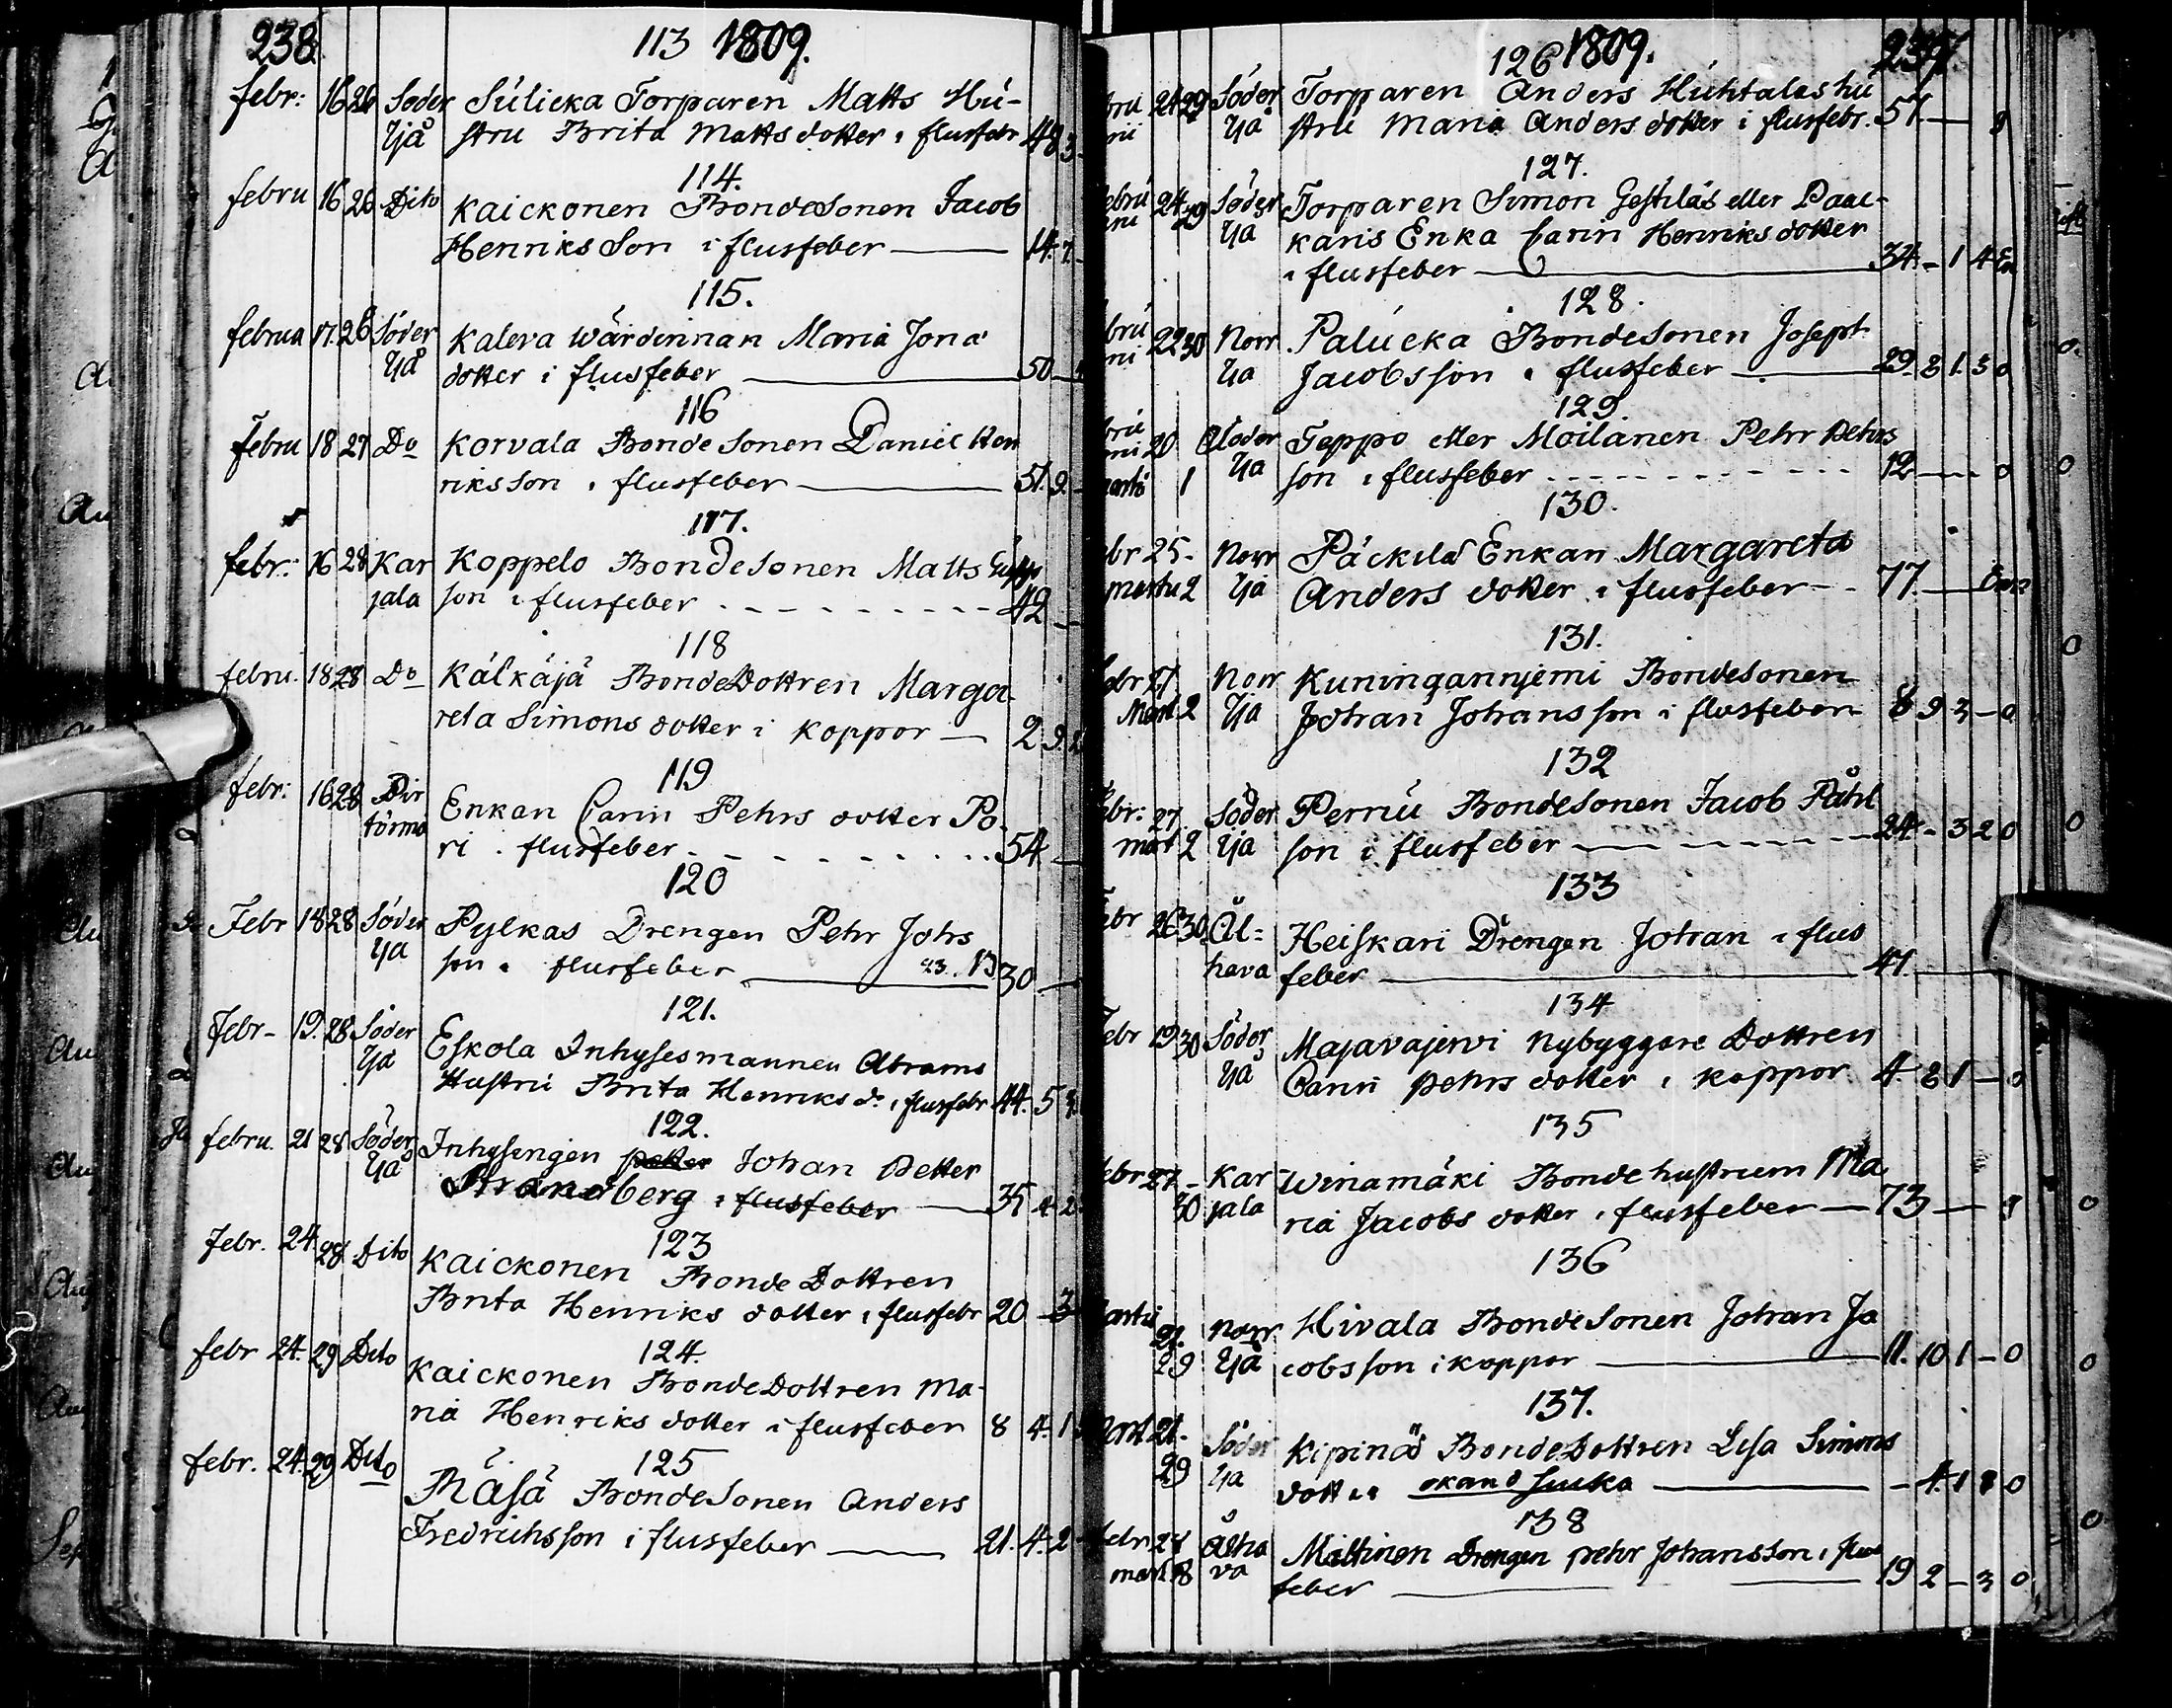 238. 113 1809.
febr: 16 26 Söder Sulicka Torparen Matts Hu-
Ijå stru Brita Mattsdotter i flusfebr 48 3
114.
febru 16 26 Dito Kaickonen Bondesonen Jacob
Henriksson i flusfeber 14. 7.
115.
februa 17. 26 Söder Kaleva wärdinnan Maria Jona
Ijå dotter i flusfeber 50
116
Febru 18 27 Do Korvala Bondesonen Daniel Hen
riksson i flusfeber 51. 9.
117.
febr: 16 28 Kar Koppelo Bondesonen Matts
jala son i flusfeber 42
118
febru. 18 28 Do Kälkäjä BondeDottren Marga
reta Simonsdotter i koppor 2 9
119
febr: 16 28 Enkan Carin Pehrs dotter Po-
ri i flusfeber 54
120
Febr 18 28 Söder Pylkas Drengen Pehr Johs
Ija son i flusfeber 30
121.
Febr- 19. 28 Söder Eskola Inhysesmannen Abrams
Ijå Hustru Brita Henriks d. i flusfebr 44. 5
122.
febru. 21 28 Söder Inhysengen Johan Petter
Ijå Strandberg i flusfeber 35 4 2
123
Febr. 24. 28 Dito Kaickonen BondeDottren
Brita Henriks dotter i flusfebr 20 3
124.
febr 24. 29 Dito Kaickonen BondeDottren Ma-
ria Henriks dotter i flusfeber 8 4. 1
125
febr. 24. 29 Dito Räsä Bondesonen Anders
Fredrichsson i flusfeber 21. 4. 2
126 1809. 237
24 29 Söder Torparen Anders Huhtalas hu
Ijå stru Maria Andersdotter i flusfebr. 57
127.
24 29 Söder Torparen Simon Gestilas eller Paac-
Ija karis Enka Carin Henriksdotter
i flusfeber 34. - 1 4
128.
22 30 Norr Palucka Bondesonen Joseph
Ija Jacobsson i flusfeber 29. 8 1. 3 0
129.
20 Söder Teppo eller Moilanen Pehr Pehrs
1 Ija son i flusfeber 12 0
130.
25. Norr Päckilä Enkan Margareta
2 Ija Anders dotter i flusfeber 77
131.
27 Norr Kuninganniemi Bondesonen
Mart 2 Ija Johan Johansson i flusfeber 8 9 3 - 0
132
27 Söder Perrnu Bondesonen Jacob Påhl
mart 2 Ija son i flusfeber 24. - 3 2 0
133
26 30 Ål= Heiskari Drengen Johan i flus
hava feber 47.
134
Febr 19 30 Söder Majavajervi Nybyggare Dottren
Ijå Carin Pehrs dotter i koppor 4. 8 1 - 0
135
27 - Kar Winamäki Bondehustrun Ma
30 jala ria Jacobs dotter i flusfeber 73
136
Norr Hivala Bondesonen Johan Ja
29 Ijå cobsson i koppor 11. 10 1 - 0
137.
21. Söder Kipinäs BondeDottren Lisa Simons
29 Ija dotter okänd siuka - 4. 1 8 0
138
Ålha Miltinen Drengen Pehr Johansson i flus
va feber 19 2 - 3 0